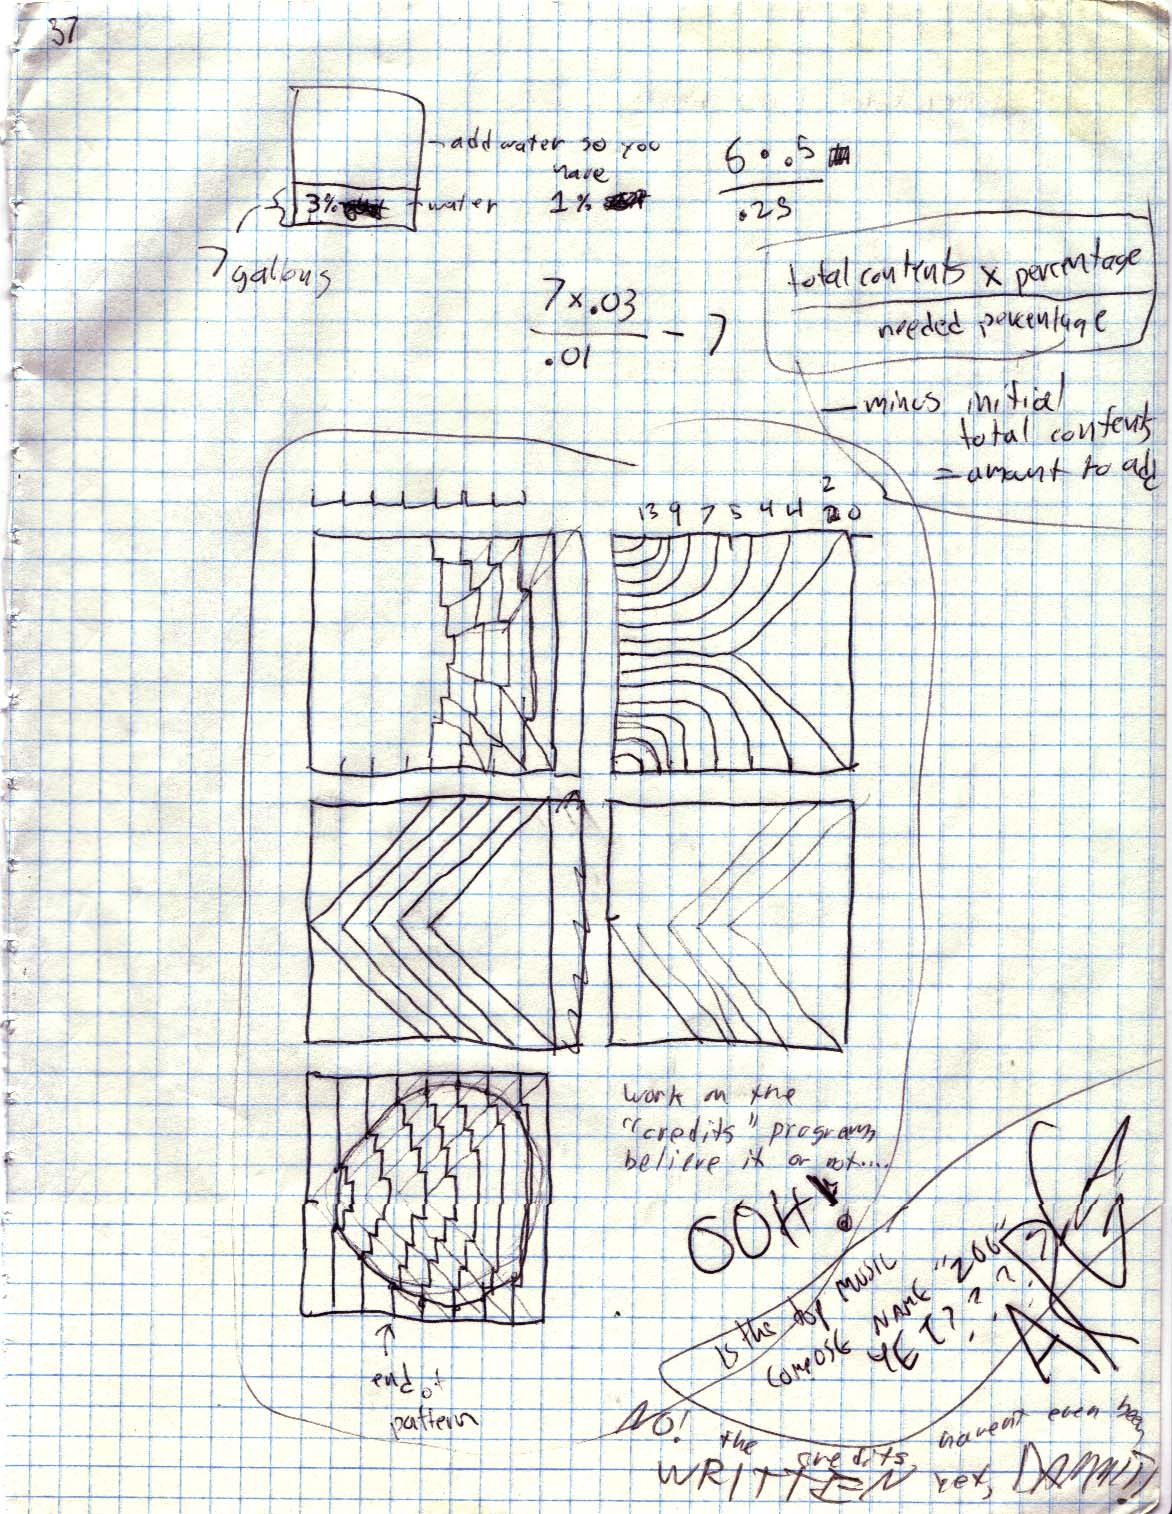 37
add water so you
have
3%
water
1%
7
gallons
6 · .5
.25
total contents x percentage
needed percentage
7 x .03
.01
- 7
— minus initial
total contents
= amount to add
13 9 7 5 4 4 2 0
work on the
"credits" program,
believe it or not....
OOH!
is the top music
compose name "200"
YET???
end of
pattern
NO!
the credits haven't even been
WRITTEN yet, DAMMIT!!